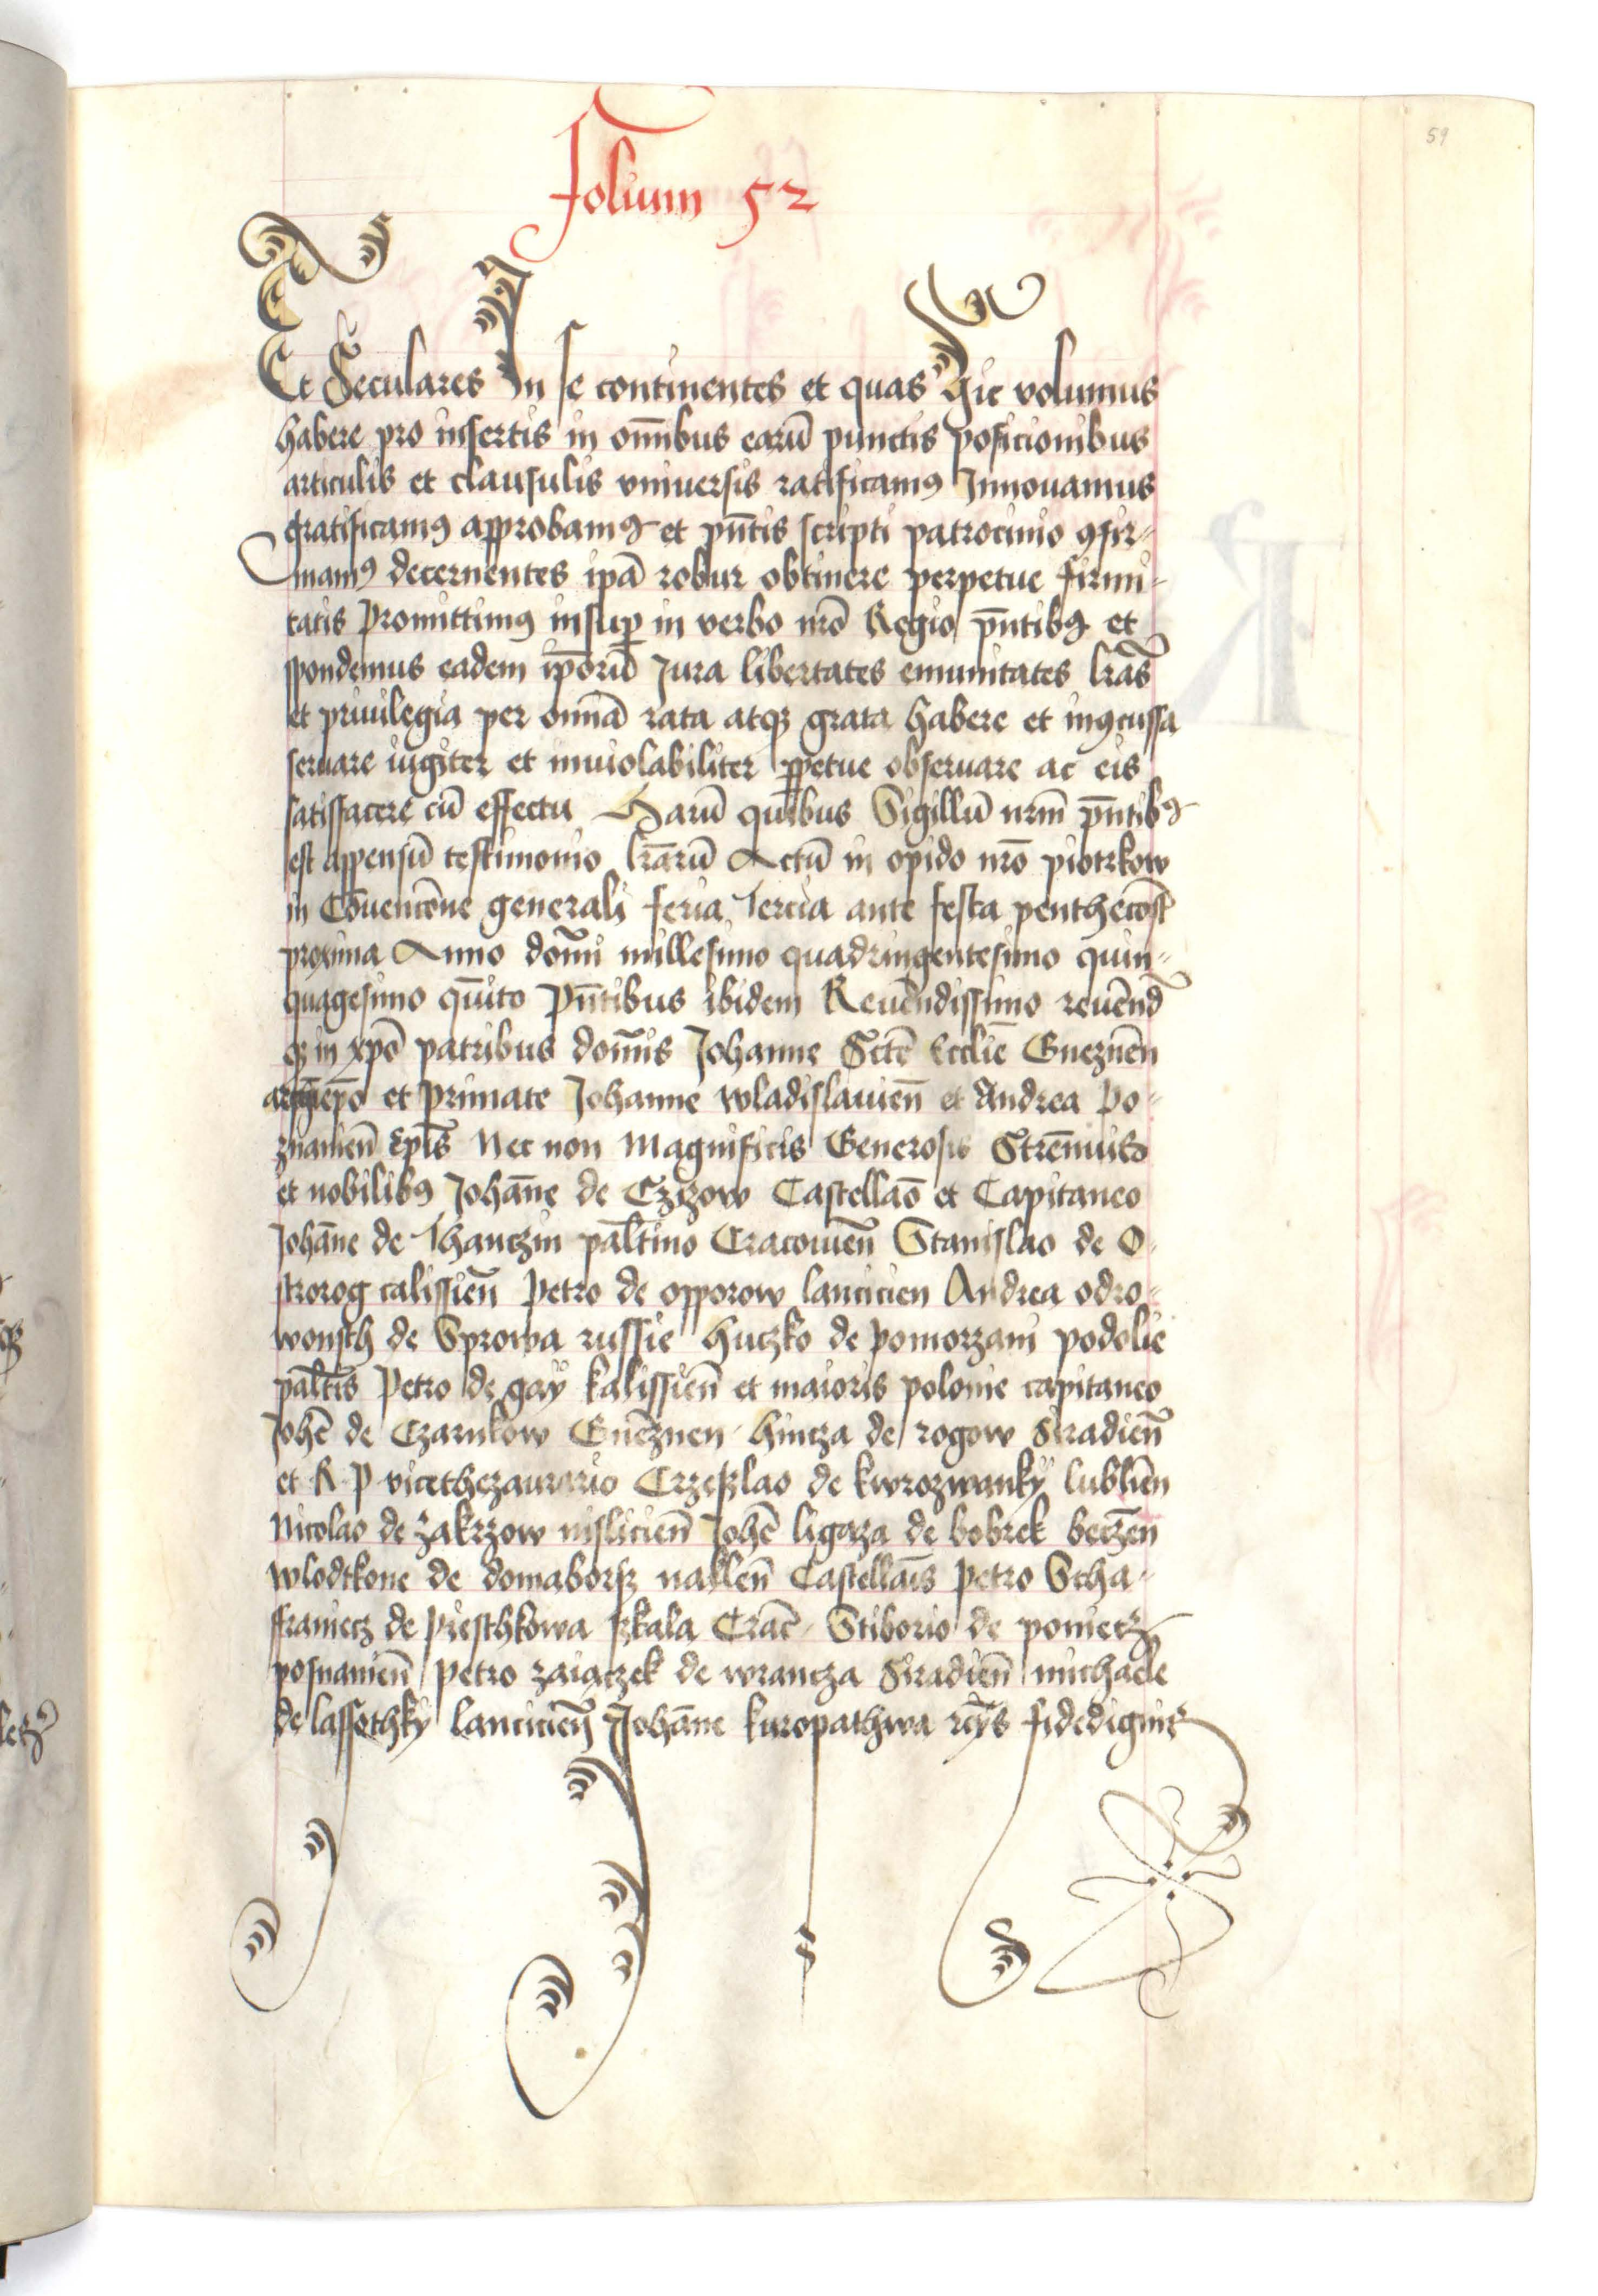 59
Folium 52
Et Seculares In se continentes et quas Hic volumus
habere pro insertis in om̄ibus earū punctis posicionibus
articulis et clausulis vniuersis ratificamꝰ Innouamus
gratificamꝰ approbamꝰ et pn̄tis scripti patrocinio ꝯfir-
mamꝰ decernentes ip̄a robur obtinere perpetue firmi-
tatis Promittimꝰ insuꝑ in verbo nr̄o Regio pn̄tibꝰ et
spondemus eadem ip̄orū Jura libertates emunitates lr̄as
et priuilegia per omnia rata atqꝫ grata habere et inꝯcussa
seruare iugiter et inuiolabiliter ꝑpetue obseruare ac eis
satisfacere cū effectu Harū quibus Sigillū nrm̄ pn̄tibꝰ
est appensū testimonio lr̄arū Actū in opido nr̄o piotrkow
in Cōuencōne generali feria Tercia ante festa penthecost̄
proxima Anno domī millesimo quadringentesimo quin-
quagesimo quīto Pn̄tibus ibidem Reuēndissimo reuēnd̄
qꝫ in xp̄o patribus domīs Johanne Sctē Ecclīe Gneznēn
archiep̄o et Primate Johanne wladislauien̄ et Andrea Po-
znanien̄ Ep̄is Nec non Magnificis Generosis Strēnuis
et nobilibꝰ Johāne de Czizow Castellaō et Capitaneo
Johāne de Thanczin pal̄tino Cracouien̄ Stanislao de O-
strorog calissien̄ Petro de opporow lancicien Andrea odro-
wonsch de Sprowa russie huczko de pomorzani podolie
pal̄tis Petro de gay kalissien̄ et maioris polonie capitaneo
Johē de Czarnkow Gnēznen hincza de rogow Siradien̄
et R P vicethezaurario Crzeslao de kwrozwanky lublīen
Nicolao de zakrzow nislicien̄ Johē ligaza de bobrek beczēn
wlodkone de domaborsz naklen̄ Castellaīs Petro Scha-
ffraniecz de Pieschkowa skala Crac̄ Stiborio de poniecz
posnanien̄ petro zaiączek de wrancza Siradien̄ michaele
de lassothky lancicien̄ Johāne kuropathwa fidedignis